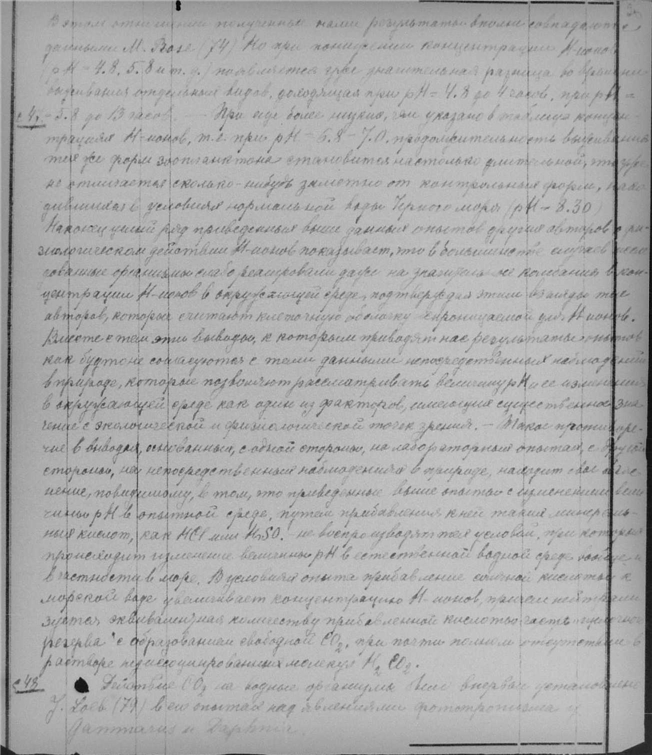 В этом отношении полученные нами результаты вполне совпадают с
данными M. Bose (74) Но при понижении концентрации H-ионов
(pH = 4.8, 5.8 и т. д.) появляется уже значительная разница во времени
выживания отдельных видов, доходящая при pH = 4.8 до 4 часов, при pH =
- 5.8 до 13 часов. — При еще более низких, чем указано в таблице концен-
трациях H-ионов, т.е. при pH = 6.8 - 7.0, продолжительность выживания
тех же форм зоопланктона становится настолько длительной, что уже
не отличается сколько-нибудь заметно от контрольных форм, нахо-
дившихся в условиях нормальной воды Черного моря (pH - 8.30)
Наконец целый ряд приведенных выше данных опытов других авторов о фи-
зиологическом действии H-ионов показывает, что в большинстве случаев иссле-
дованные организмы слабо реагировали даже на значительные колебания в кон-
центрации H-ионов в окружающей среде, подтверждая этим взгляды тех
авторов, которые считают клеточную оболочку непроницаемой для H-ионов.
Вместе с тем эти выводы, к которым приводят нас результаты опытов
как будто не согласуются с теми данными непосредственных наблюдений
в природе, которые позволяют рассматривать величину pH и ее изменения
в окружающей среде как один из факторов, имеющих существенное зна-
чение с экологической и физиологической точек зрения. — Такое противоре-
чие в выводах, основанных, с одной стороны, на лабораторных опытах, с другой
стороны, на непосредственных наблюдениях в природе, находит свое объяс-
нение, повидимому, в том, что приведенные выше опыты с изменением вели-
чины pH в опытной среде, путем прибавления к ней таких минераль-
ных кислот, как HCl или H₂SO₄ не воспроизводят тех условий, при которых
происходит изменение величины pH в естественной водной среде вообще и
в частности в море. В условиях опыта прибавление соляной кислоты к
морской воде увеличивает концентрацию H-ионов, причем нейтрали-
зуется эквивалентная количеству прибавленной кислоты часть щелочного
резерва с образованием свободной CO₂, при почти полном отсутствии в
растворе недиссоциированных молекул H₂CO₃.
с 48 Действие CO₂ на водные организмы было впервые установлено
J. Loeb (78) в его опытах над явлениями фототропизма у
Gammarus и Daphnia.